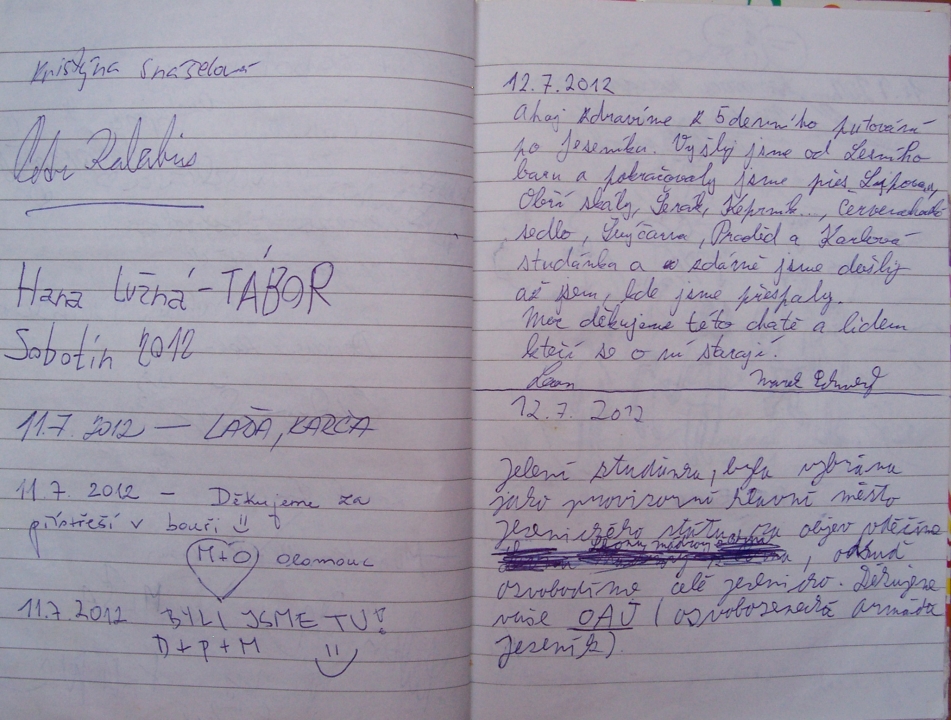 Kristýna Snášelová
Petr Kalabus
Hana Lužná - TÁBOR
Sobotín 2012
11.7. 2012 — LAĎA, KARČA
11.7. 2012 - Děkujeme za
přístřeší v bouři
M+O Olomouc
11.7. 2012 BYLI JSME TU!
D + P + M
12.7.2012
Ahoj zdravíme z 5denního putování
po Jeseníku. Vyšly jsme od Lesního
baru a pokračovaly jsme přes Lipovou,
Obří skály, Šerák, Keprník..., Červenohorské
sedlo, Švýčárna, Praděd a Karlová
studánka a zdárně jsme došly
až sem, kde jsme přespaly.
Moc děkujeme této chatě a lidem
kteří se o ni starají.
Marek
12.7. 2012
Jelení studánka, byla vybrána
jako provizorní hlavní město
jesenického státu
odsud
osvobodíme celé jesenicko. Děkujeme
vaše OAJ (osvobozenecká armáda
Jeseník).